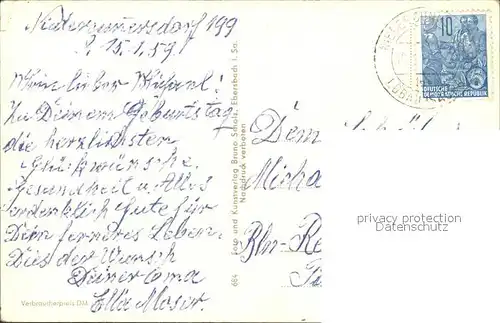 Niedercunnersdorf 199
d. 15.1.59!
Mein lieber Michael!
Zu Deinem Geburtstag
die herzlichsten
Glückwünsche.
Gesundheit u. Alles
erdenklich Gute für
Dein ferneres Leben.
Dies der Wunsch
Deiner Oma
Ella Moser.
Verbraucherpreis DM
684 Foto und Kunstverlag Bruno Scholz, Ebersbach i. Sa.
Nachdruck verboten
10
DEUTSCHE
DEMOKRATISCHE REPUBLIK
Dem
Micha
Bln-Re
privacy protection
Datenschutz